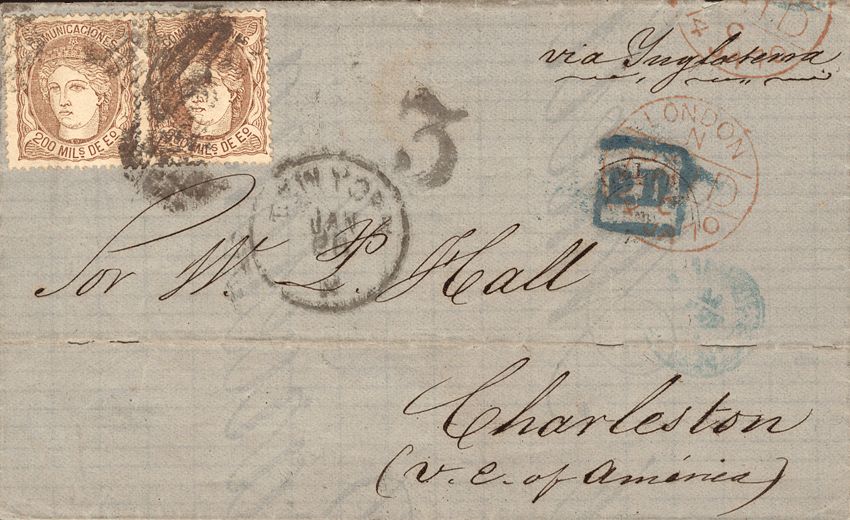 COMUNICACIONES
200 MILS DE Eº
200 MILS DE Eº
via Inglaterra
3
LONDON
PD
NEW YORK
JAN
Sor W. P. Hall
Charleston
(U. E. of América)